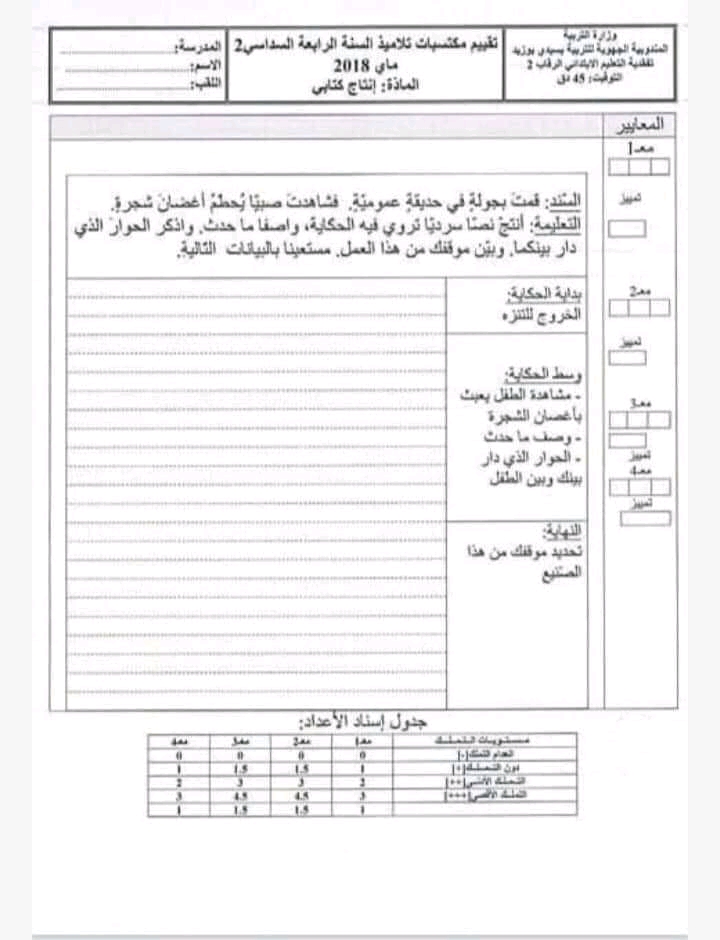 وزارة التربية
المندوبية الجهوية للتربية بسيدي بوزيد
تفقدية التعليم الابتدائي الرقاب 2
التوقيت: 45 دق
تقييم مكتسبات تلاميذ السنة الرابعة السداسي2
ماي 2018
المادّة: إنتاج كتابي
المدرسة:
الاسم:
اللقب:
المعايير
معـ1
تميز
معـ2
تميز
معـ3
تميز
معـ4
تميز
السّند: قمتَ بجولةٍ في حديقةٍ عموميّةٍ. فشاهدتَ صبيًا يُحطّمُ أغصانَ شجرةٍ.
التعليمة: أنتجْ نصّا سرديّا تروي فيه الحكاية، واصفا ما حدث. واذكر الحوارَ الذي
دار بينكما. وبيّن موقفك من هذا العمل. مستعينا بالبيانات التالية.
بداية الحكاية:
الخروج للتنزه
وسط الحكاية:
- مشاهدة الطفل يعبث
بأغصان الشجرة
- وصف ما حدث
- الحوار الذي دار
بينك وبين الطفل
النهاية:
تحديد موقفك من هذا
الصّنيع
جدول إسناد الأعداد:
مستويات التملك معـ1 معـ2 معـ3 معـ4
انعدام التملك[-] 0 0 0 0
دون التملك[+] 1 1.5 1.5 1
التملك الأدنى[++] 2 3 3 2
التملك الأقصى[+++] 3 4.5 4.5 3
1 1.5 1.5 1